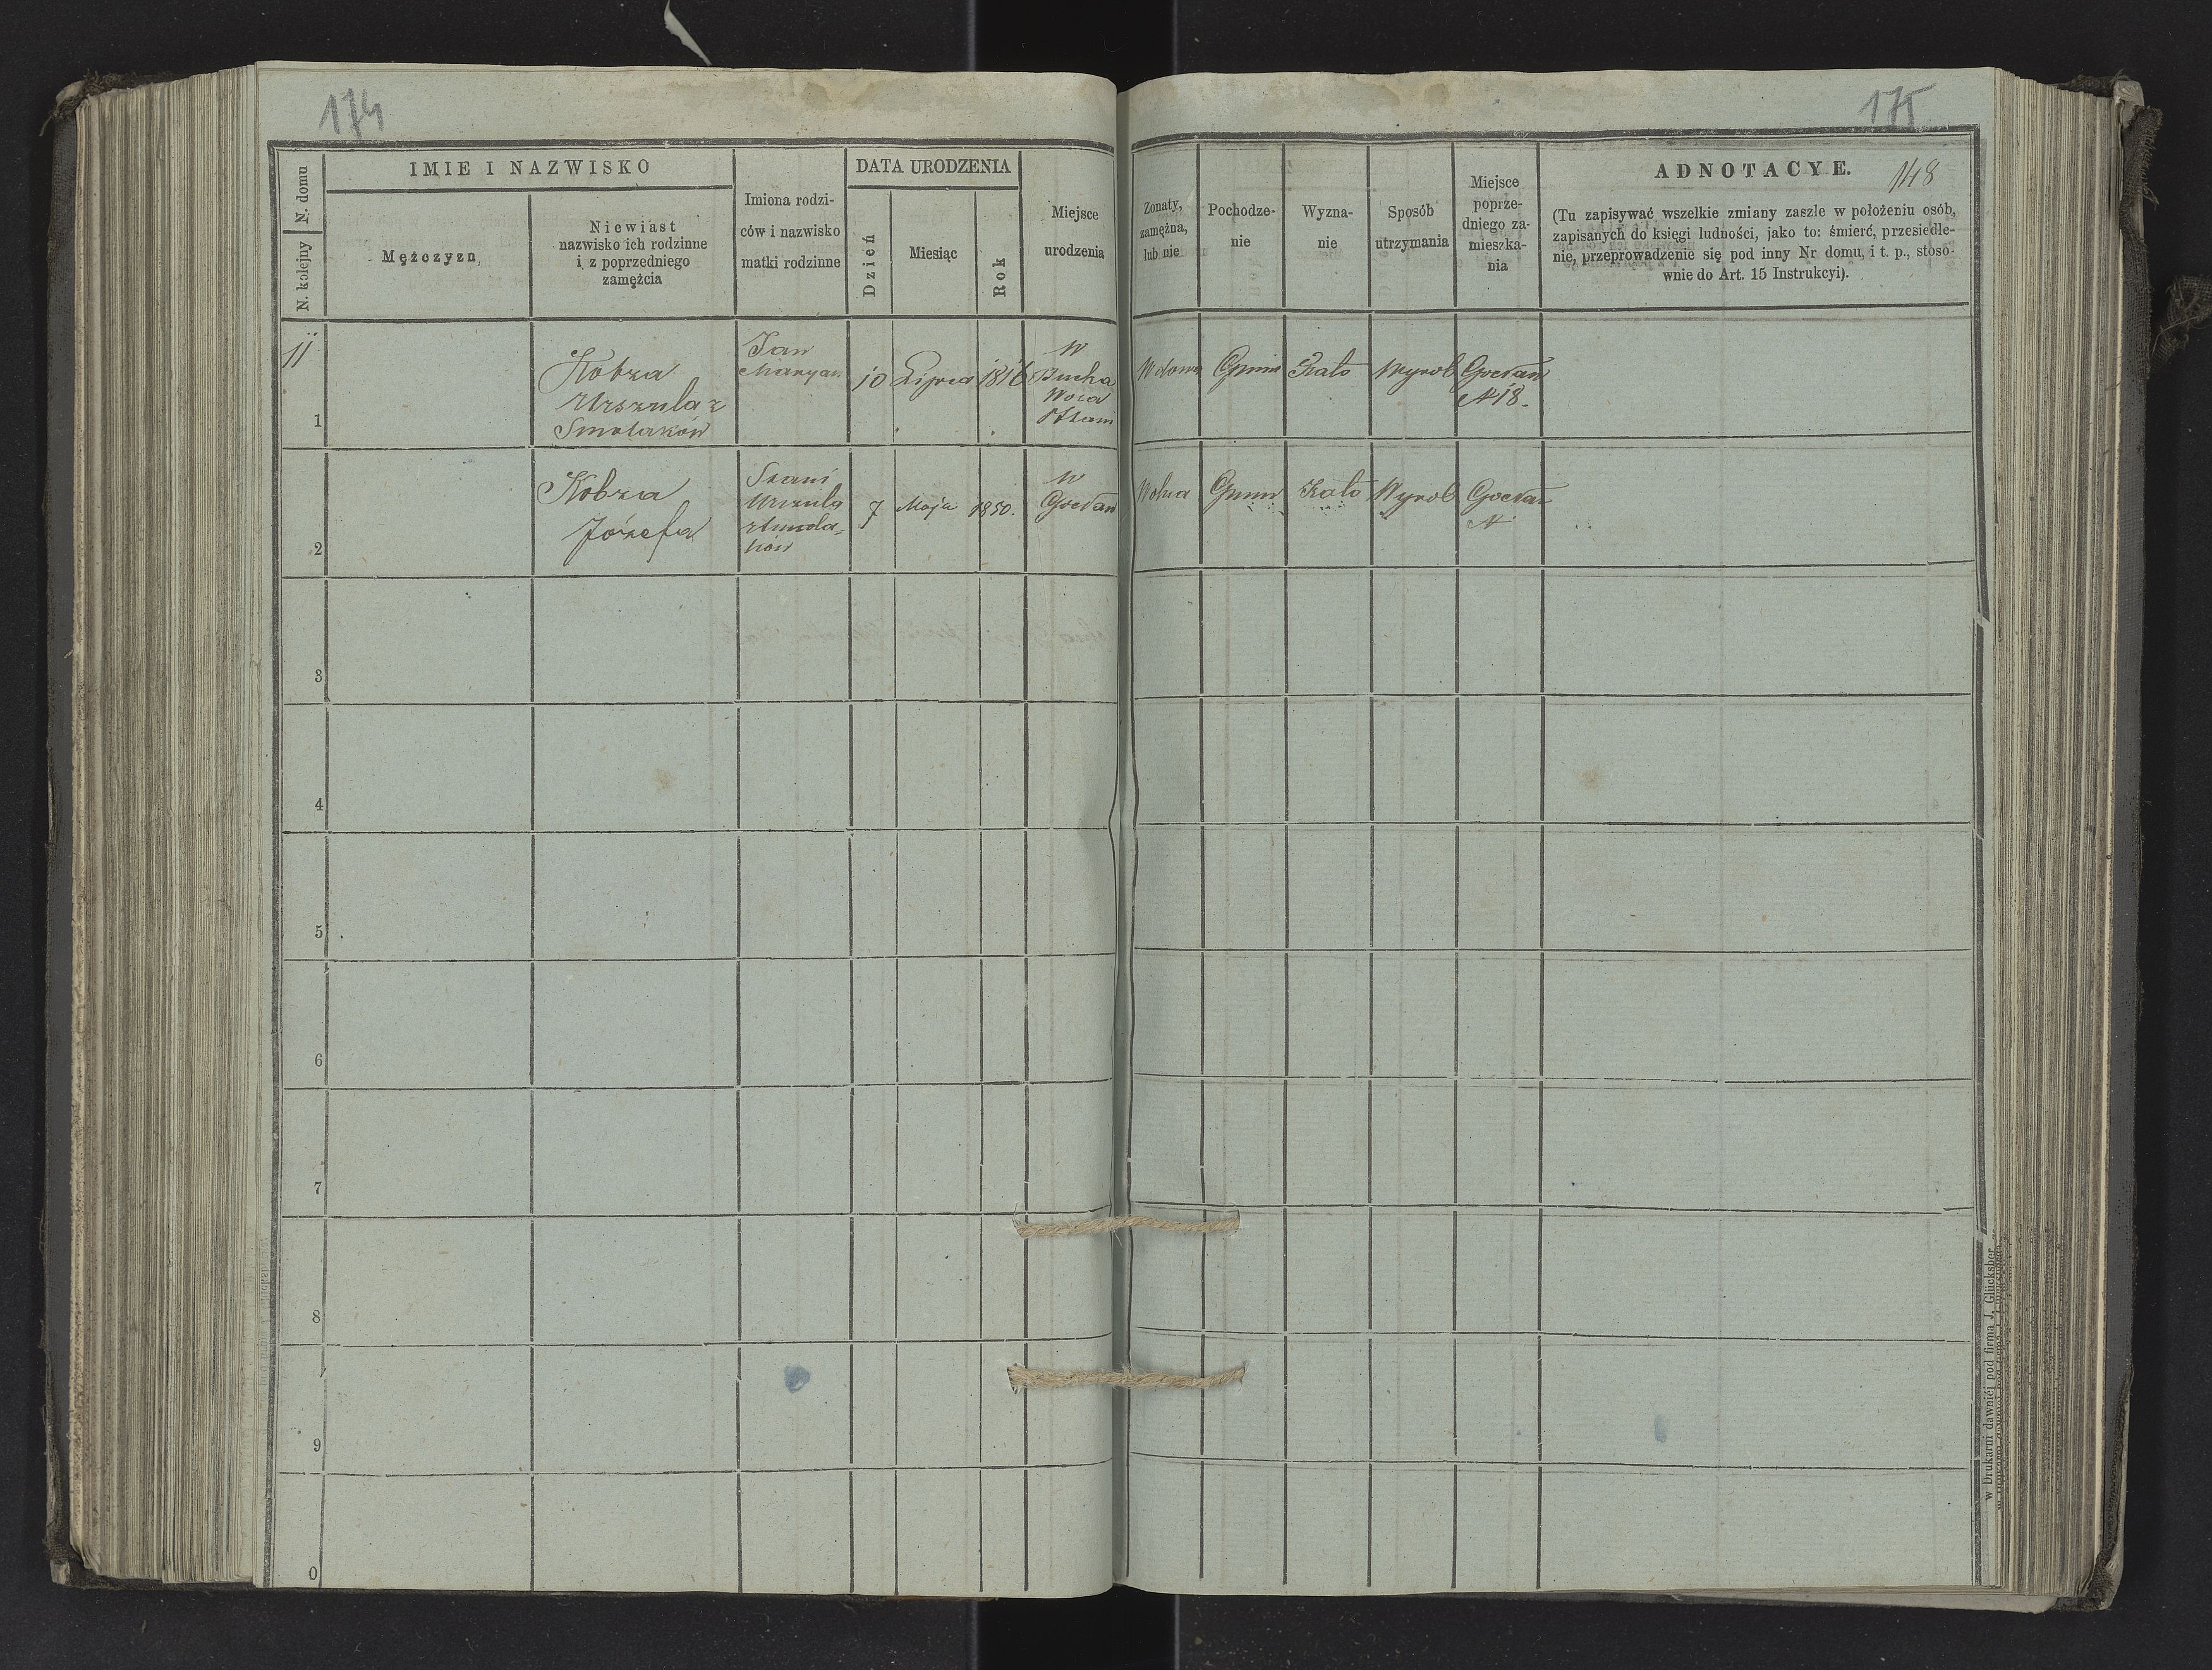 174
N. domu
N. kolejny
IMIE I NAZWISKO
Mężczyzn
Niewiast
nazwisko ich rodzinne
i z poprzedniego
zamężcia
Imiona rodzi-
ców i nazwisko
matki rodzinne
DATA URODZENIA
Dzień
Miesiąc
Rok
Miejsce
urodzenia
11
1
Kobza
Urszula z
Smolaków
Jan
Maryan
10
Lipca
1816
W
Bucha
Wola
2
Kobza
Józefa
Urszula
7
Maja
1850.
W
3
4
5
6
7
8
9
0
175
148
Zonaty,
zamężna,
lub nie
Pochodze-
nie
Wyzna-
nie
Sposób
utrzymania
Miejsce
poprze-
dniego za-
mieszka-
nia
ADNOTACYE.
(Tu zapisywać wszelkie zmiany zaszłe w położeniu osób,
zapisanych do księgi ludności, jako to: śmierć, przesiedle-
nie, przeprowadzenie się pod inny Nr domu, i t. p., stoso-
wnie do Art. 15 Instrukcyi).
Gmin
Kato
Wyrob
N 18.
Wolna
Gmin
Kato
Wyrob
N
w Drukarni dawniéj pod firma J. Glücksber